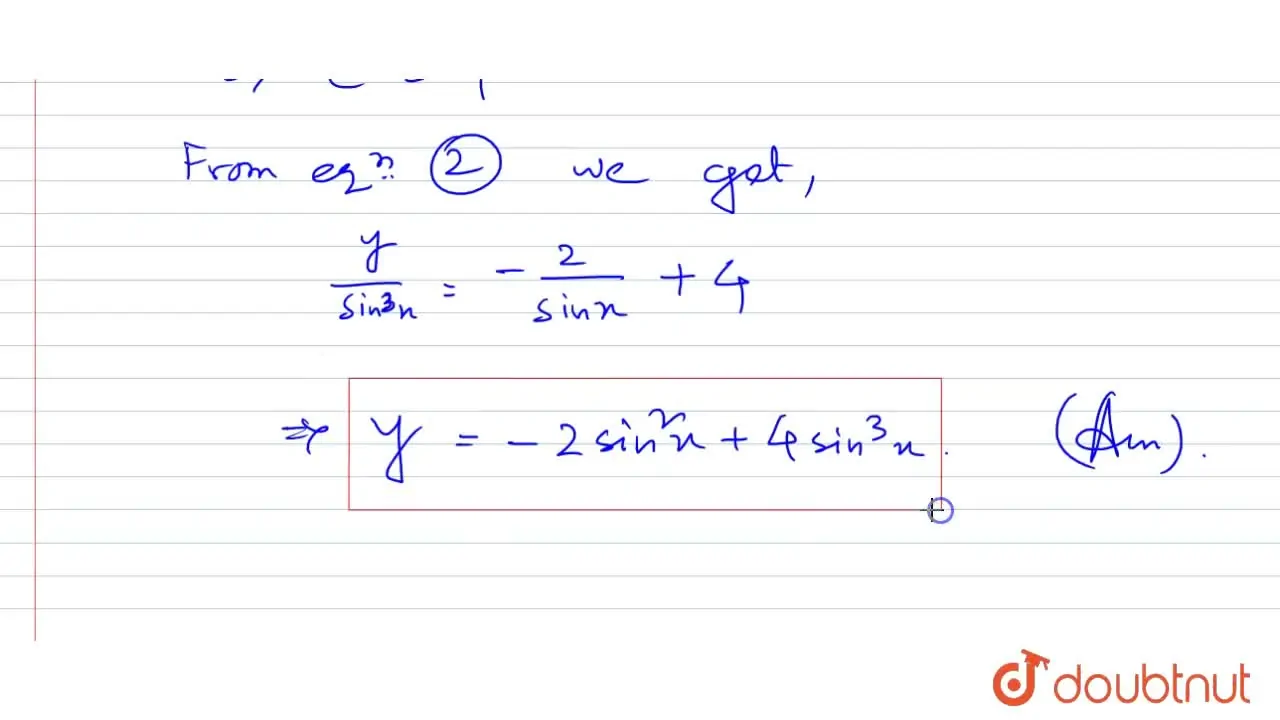 From eqn. 2 we get,
y/sin³x = -2/sinx + 4
⇒ y = -2sin²x + 4sin³x. (Ans).
doubtnut